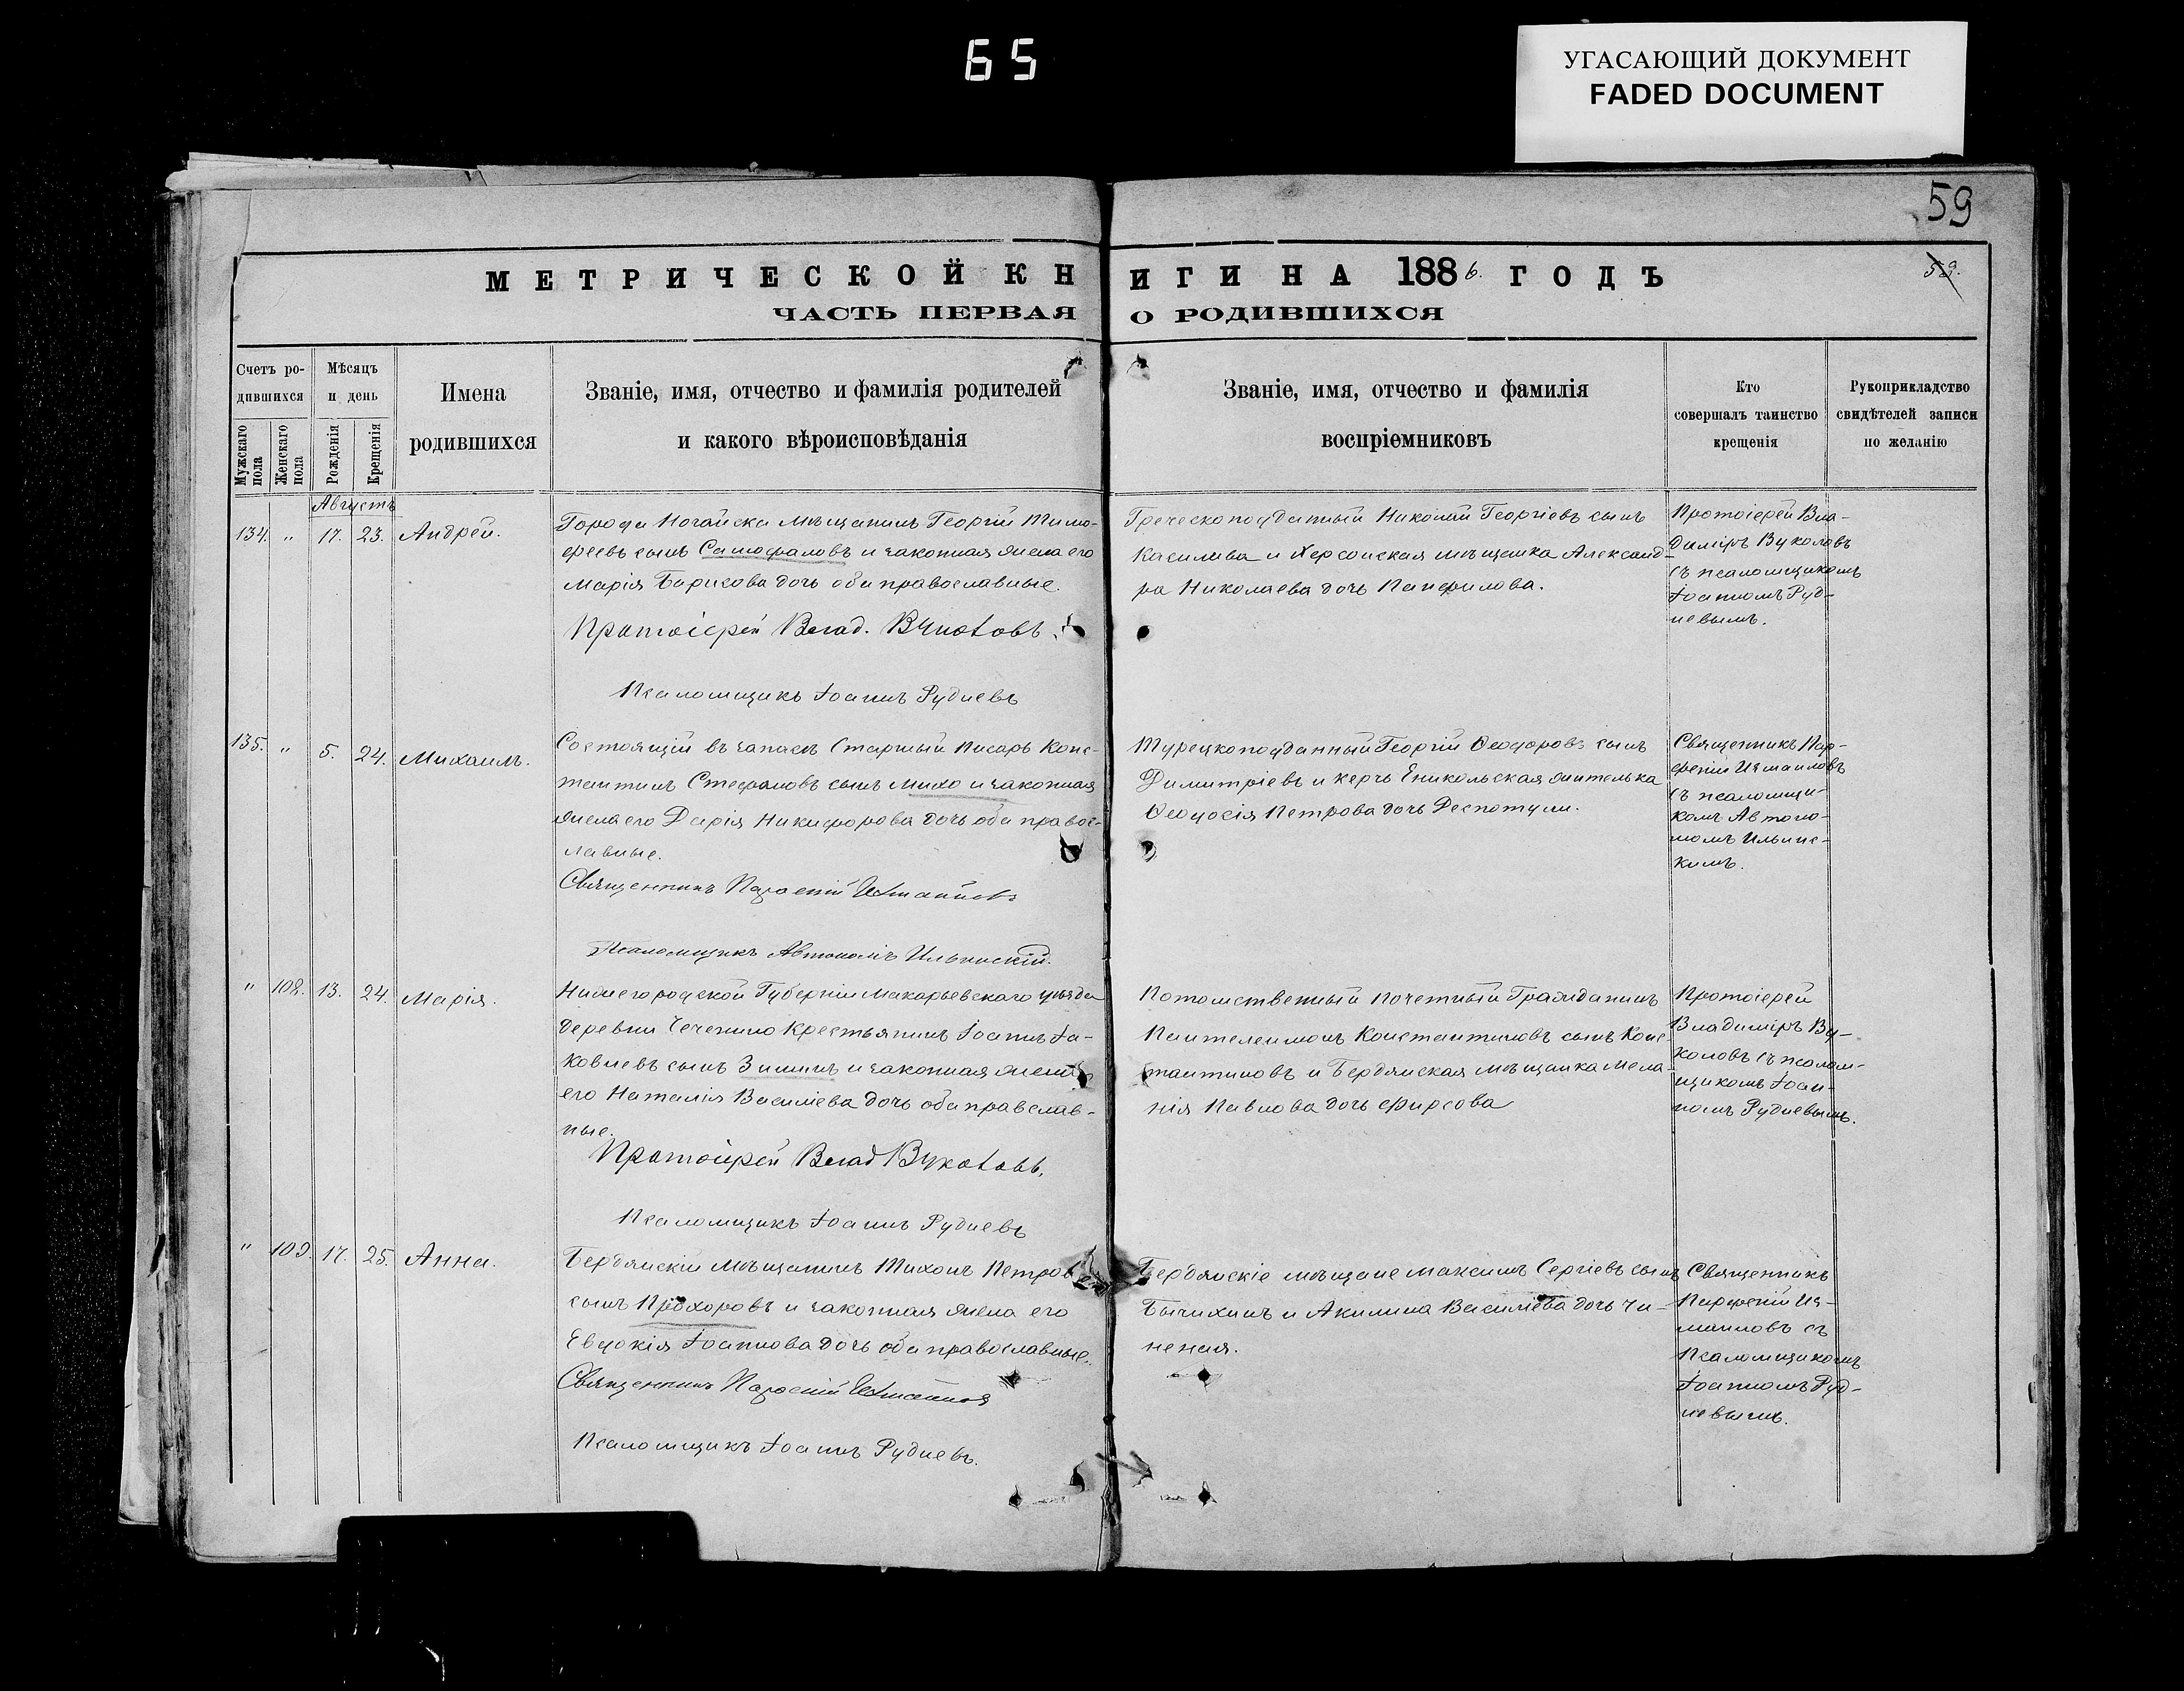 65
УГАСАЮЩИЙ ДОКУМЕНТ
FADED DOCUMENT
59
МЕТРИЧЕСКОЙ КНИГИ НА 1886. ГОДЪ
59.
ЧАСТЬ ПЕРВАЯ О РОДИВШИХСЯ
Счетъ ро-
дившихся
Мужскаго пола
Женскаго пола
Мѣсяцъ
и день
Рожденія
Крещенія
Имена
родившихся
Званіе, имя, отчество и фамилія родителей
и какого вѣроисповѣданія
Званіе, имя, отчество и фамилія
воспріемниковъ
Кто
совершалъ таинство
крещенія
Рукоприкладство
свидѣтелей записи
по желанію
Августъ
134. " 17. 23. Андрей.
Города Ногайска мѣщанинъ Георгій Тимо-
феевъ сынъ Самофаловъ и законная жена его
Марія Борисова дочь оба православные.
Протоіерей Влад. Вуколовъ.
Псаломщикъ Іоаннъ Рудневъ
Греческоподданный Николай Георгіевъ сынъ
Касилива и Херсонская мѣщанка Александ-
ра Николаева дочь Панфилова.
Протоіерей Вла-
диміръ Вуколовъ
съ псаломщикомъ
Іоанномъ Руд-
невымъ.
135. " 5. 24. Михаилъ.
Состоящій въ запасѣ Старшій Писарь Конс-
тантинъ Стефановъ сынъ Михо и законная
жена его Дарія Никифорова дочь оба правос-
лавные.
Священникъ Парфеній Измаиловъ
Псаломщикъ Автономъ Ильинскій.
Турецкоподданный Георгій Ѳеодоровъ сынъ
Димитріевъ и Керчь Еникольская жителька
Ѳеодосія Петрова дочь Деспотули.
Священникъ Пар-
феній Измаиловъ
съ псаломщи-
комъ Автоно-
момъ Ильинс-
кимъ.
" 108. 13. 24. Марія.
Нижегородской Губерніи Макарьевскаго уѣзда
деревни Чеченино Крестьянинъ Іоаннъ Іа-
ковлевъ сынъ Зиминъ и законная жена
его Наталія Василіева дочь оба православ-
ные.
Протоіерей Влад Вуколовъ.
Псаломщикъ Іоаннъ Рудневъ
Потомственный почетный Гражданинъ
Пантелеимонъ Константиновъ сынъ Конс-
тантиновъ и Бердянская мѣщанка Мела-
нія Павлова дочь Фирсова
Протоіерей
Владиміръ Ву-
коловъ съ псалом-
щикомъ Іоан-
номъ Рудневымъ.
" 109. 17. 25. Анна.
Бердянскій мѣщанинъ Тихонъ Петровъ
сынъ Прохоровъ и законная жена его
Евдокія Іоаннова дочь оба православные.
Священникъ Парфеній Измаиловъ
Псаломщикъ Іоаннъ Рудневъ.
Бердянскіе мѣщане Максимъ Сергіевъ сынъ
Бычихинъ и Акилина Василіева дочь Чи-
неная.
Священникъ
Парфеній Из-
маиловъ съ
Псаломщикомъ
Іоанномъ Руд-
невымъ.